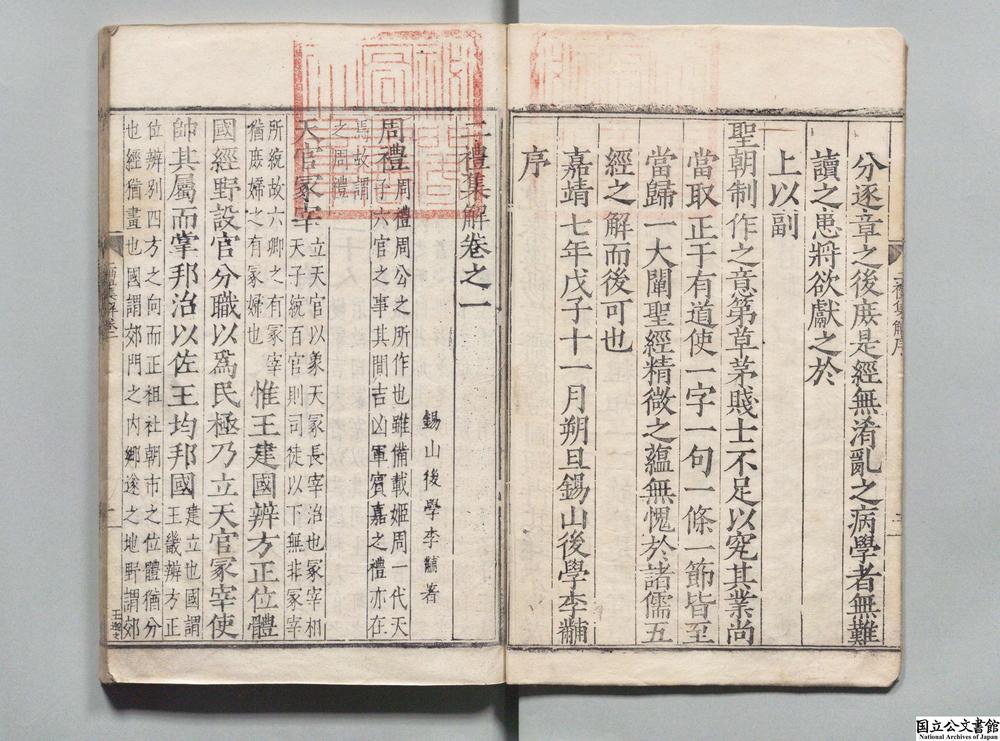 分逐章之後庻是經無淆亂之病學者無難
讀之患將欲獻之於
上以副
聖朝制作之意第草茅賤士不足以究其業尚
當取正于有道使一字一句一條一節皆至
當歸一大闡聖經精微之蘊無愧於諸儒五
經之解而後可也
嘉靖七年戊子十一月朔旦錫山後學李黼
序
二禮集解序
二禮集解卷之一
錫山後學李黼著
周禮 周禮周公之所作也雖備載姬周一代天
子六官之事其間吉凶軍賓嘉之禮亦在
焉故謂
之周禮
天官冢宰 立天官以象天冢長宰治也冢宰相
天子統百官則司徒以下無非冢宰
所統故六卿之有冢宰
猶庻婦之有冢婦也
惟王建國辨方正位體
國經野設官分職以爲民極乃立天官冢宰使
帥其屬而掌邦治以佐王均邦國
建立也國謂
王畿辨方正
位辨別四方之向而正祖社朝市之位體猶分
也經猶畫也國謂郊門之内鄉遂之地野謂郊
国立公文書館
National Archives of Japan